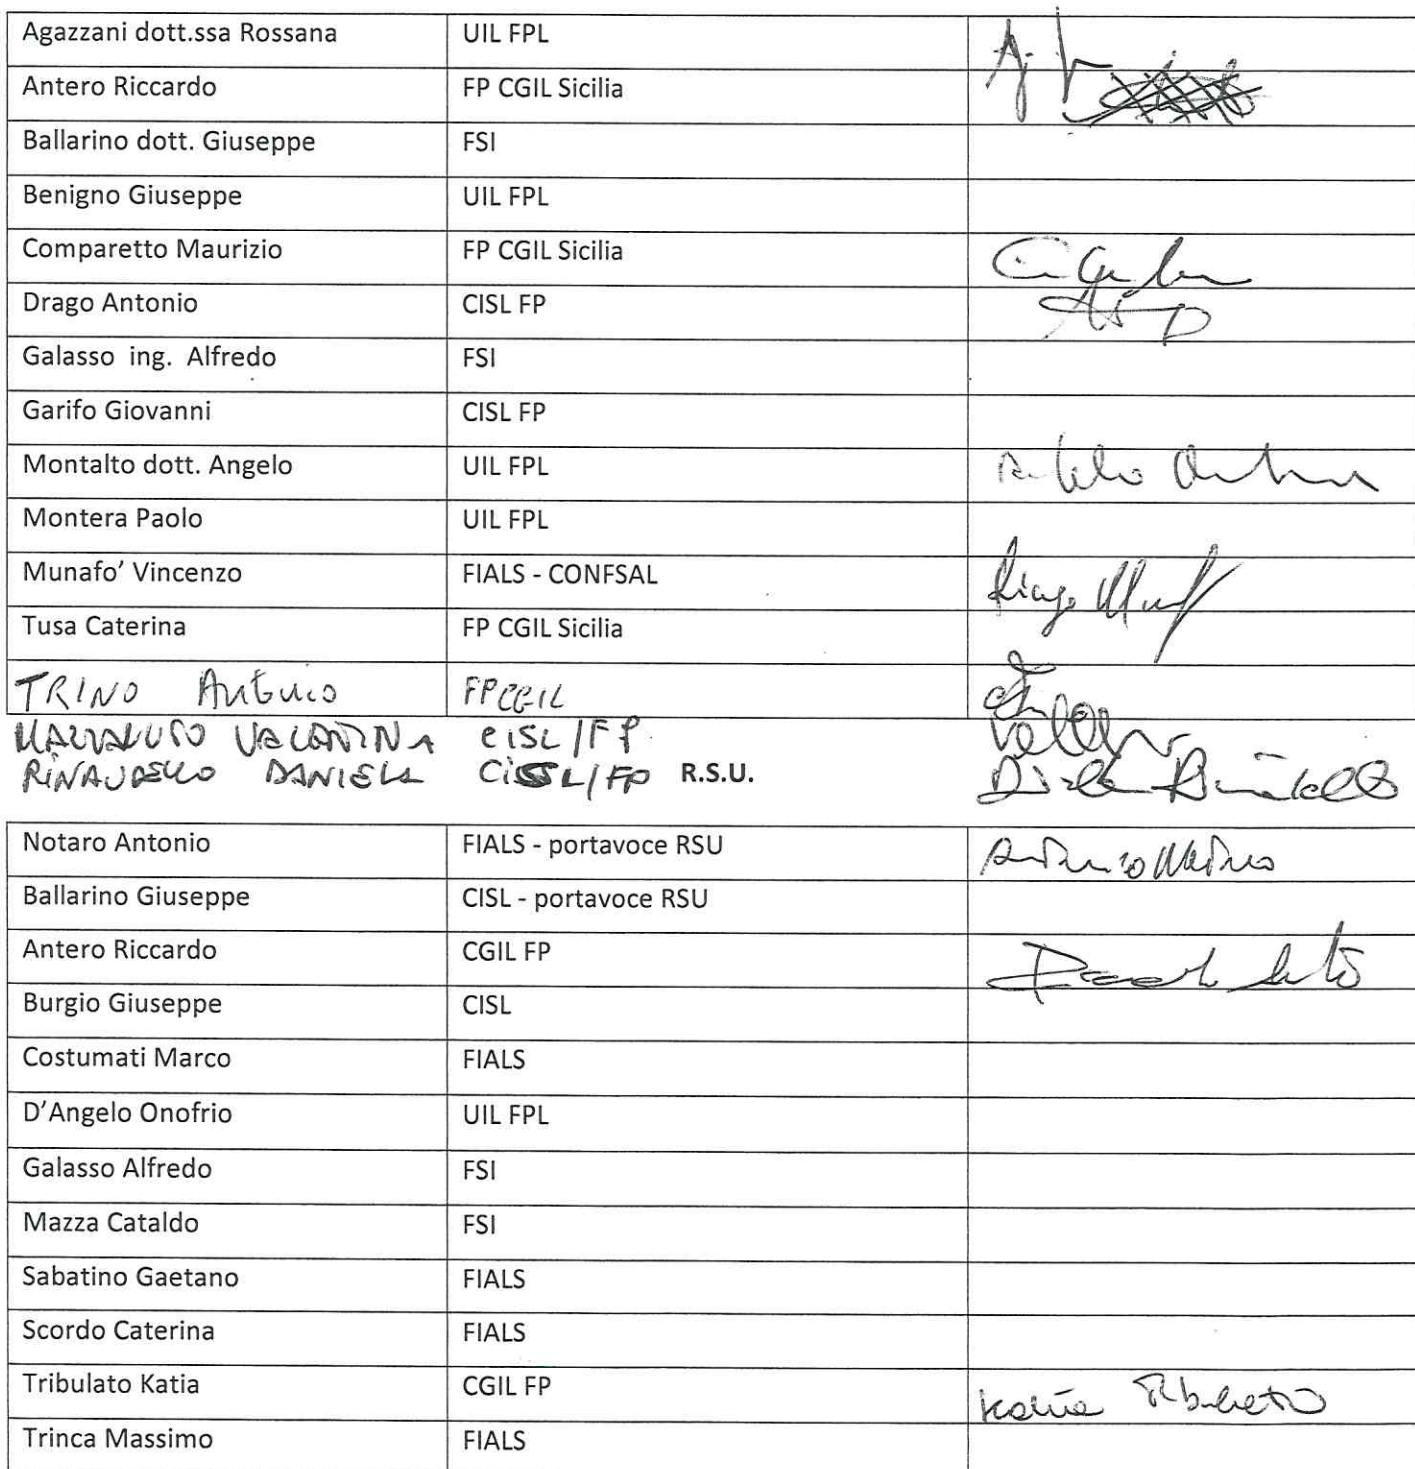 Agazzani dott.ssa Rossana UIL FPL
Antero Riccardo FP CGIL Sicilia
Ballarino dott. Giuseppe FSI
Benigno Giuseppe UIL FPL
Comparetto Maurizio FP CGIL Sicilia
Drago Antonio CISL FP
Galasso ing. Alfredo FSI
Garifo Giovanni CISL FP
Montalto dott. Angelo UIL FPL
Montera Paolo UIL FPL
Munafo' Vincenzo FIALS - CONFSAL
Tusa Caterina FP CGIL Sicilia
TRINO Antonio FPCGIL
VALENTINA CISL/FP
DANIELA CISL/FP R.S.U.
Notaro Antonio FIALS - portavoce RSU Antonio Notaro
Ballarino Giuseppe CISL - portavoce RSU
Antero Riccardo CGIL FP
Burgio Giuseppe CISL
Costumati Marco FIALS
D'Angelo Onofrio UIL FPL
Galasso Alfredo FSI
Mazza Cataldo FSI
Sabatino Gaetano FIALS
Scordo Caterina FIALS
Tribulato Katia CGIL FP Katia Tribulato
Trinca Massimo FIALS